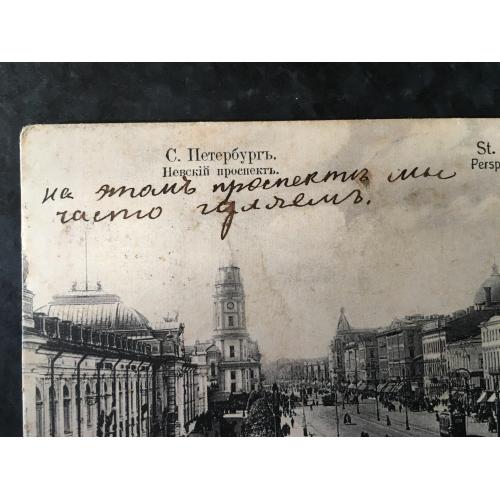 С. Петербургъ.
Невскій проспектъ.
St.
Persp
на этомъ проспектѣ мы
часто гуляемъ.